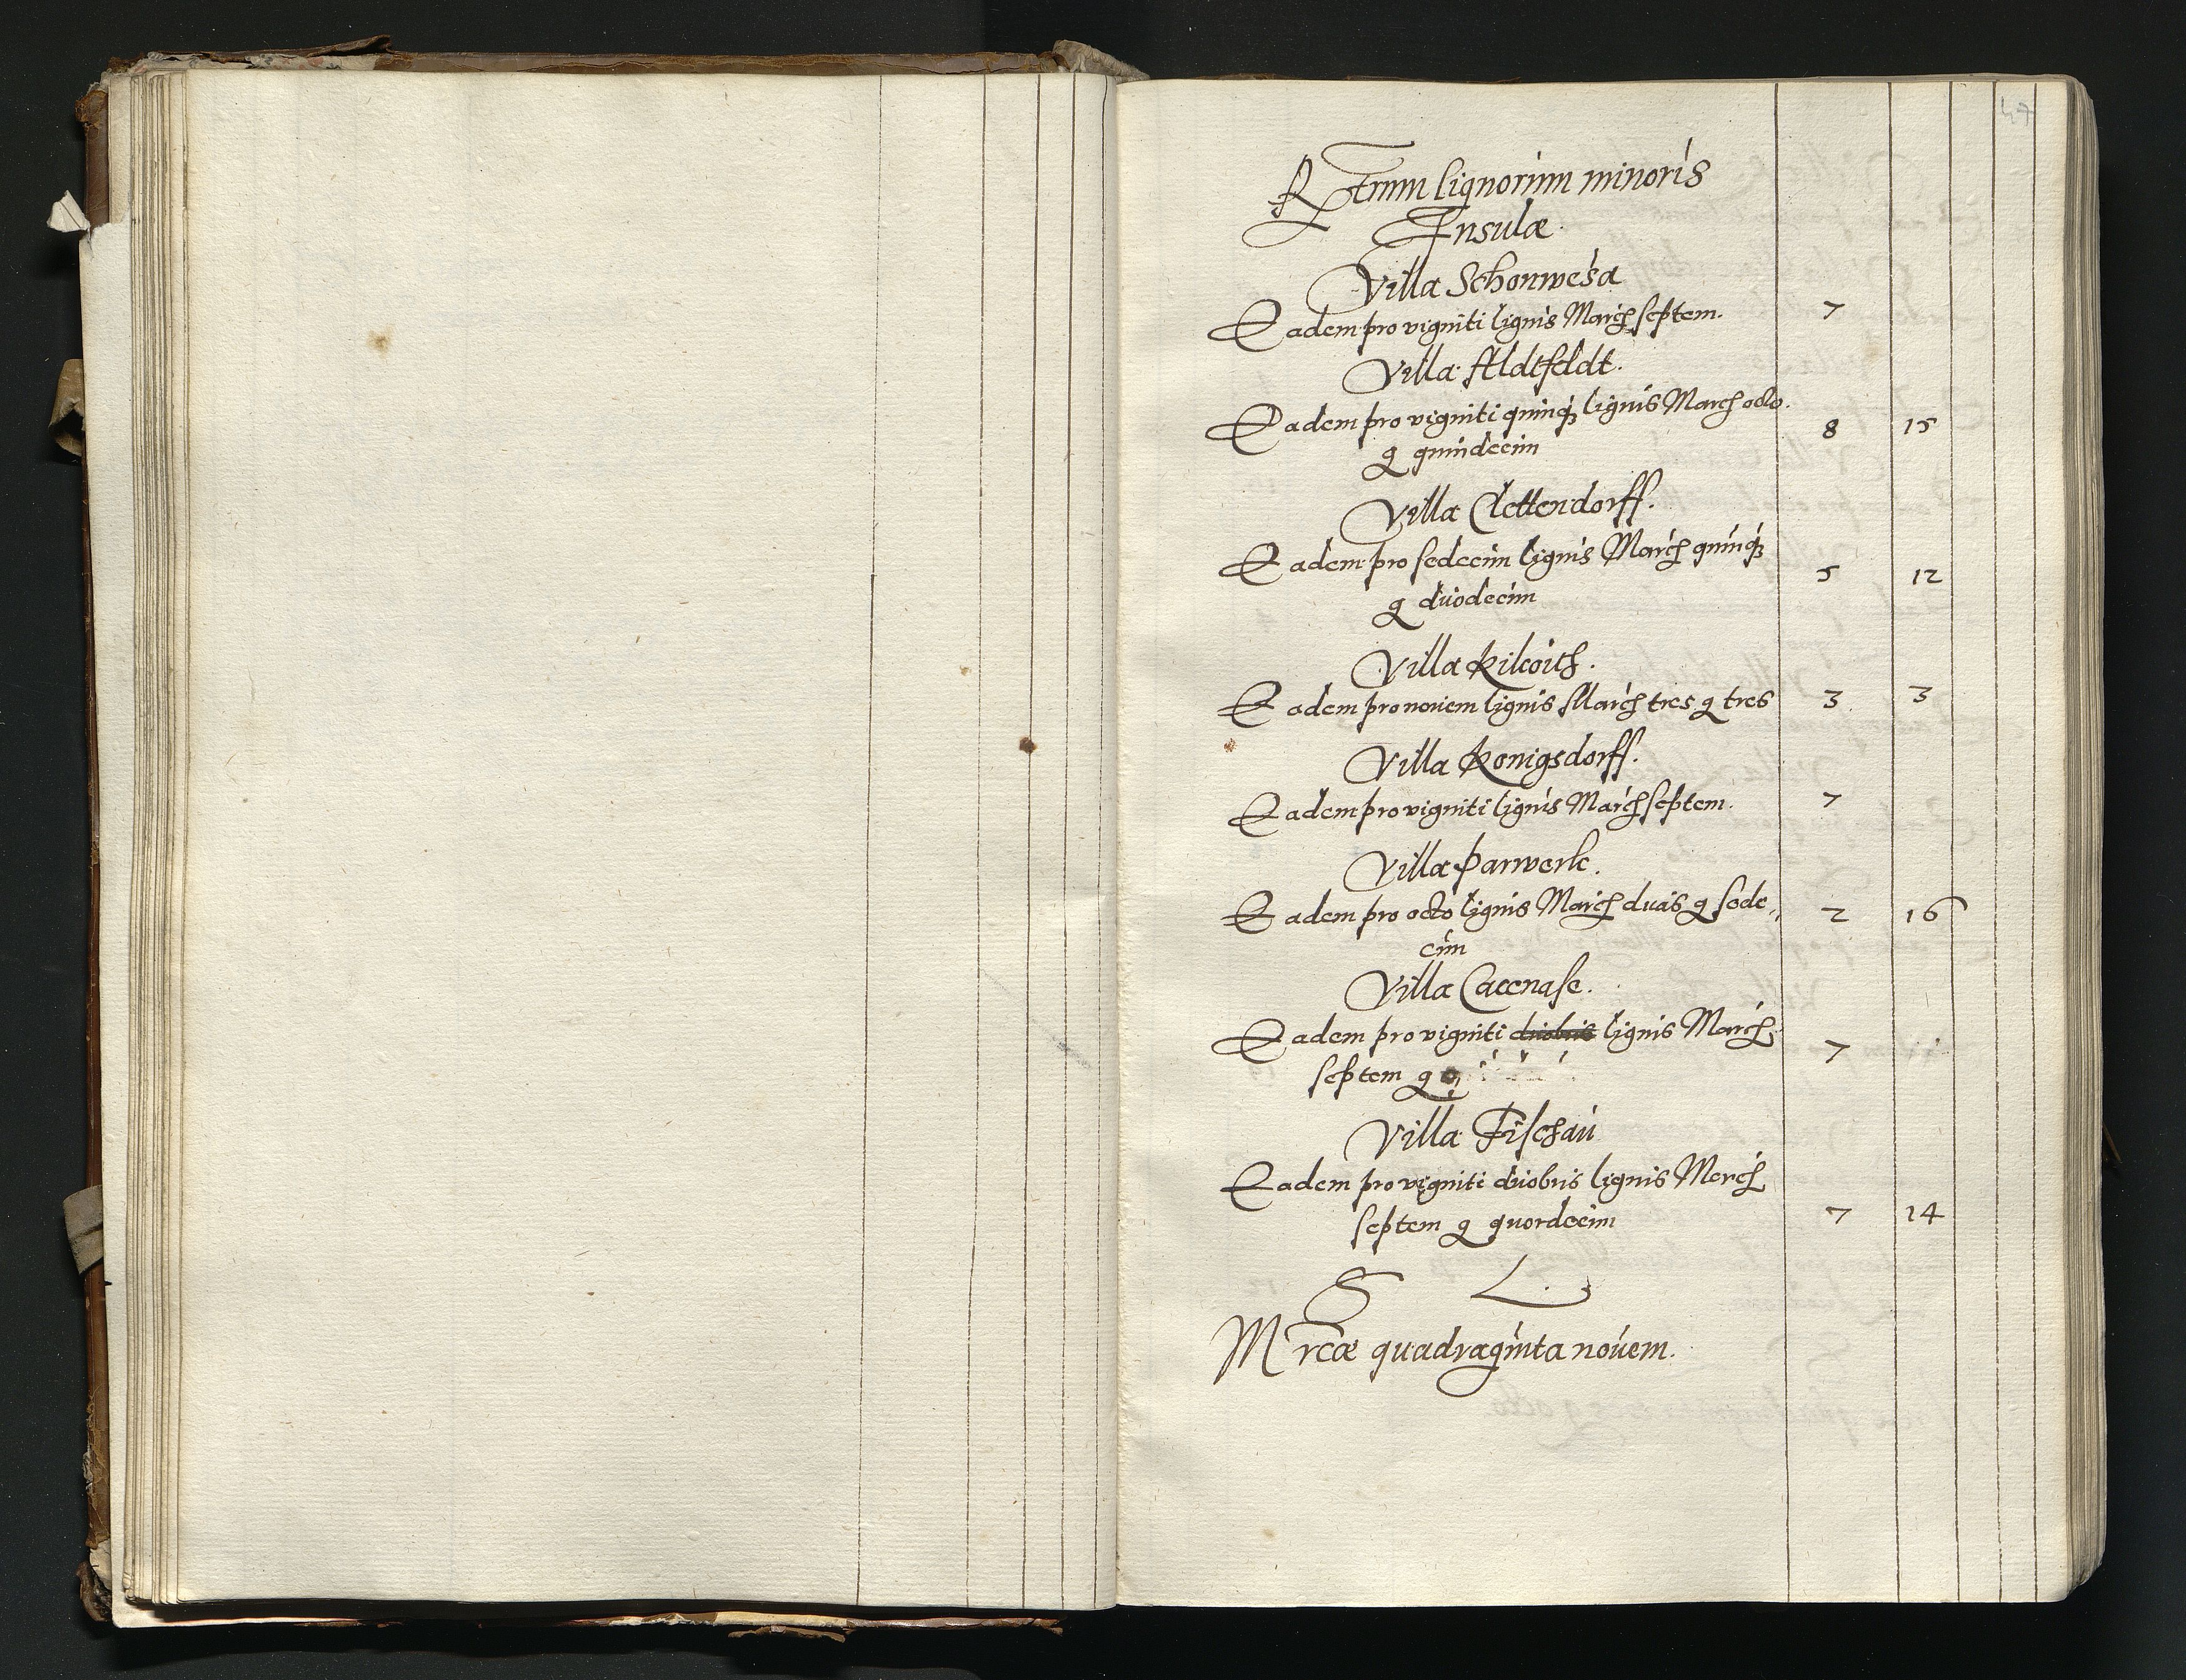 47
Rtrnm lignorum minoris
Insulæ.
Villa Schonwesa
Eadem pro vigniti lignis March septem. 7
Villa Aldtfeldt.
Eadem pro vigniti quinq3 lignis March octo. 8 15
g quindecim
Villa Clettendorff.
Eadem pro sedecim lignis March quinq3 5 12
g duodecim
Villa Kilcoith.
Eadem pro nouem lignis March tres g tres 3 3
Villa Konigsdorff.
Eadem pro vigniti lignis March septem. 7
Villa Parwerk.
Eadem pro octo lignis March duas g sede, 2 16
cim
Villa Caccnase.
Eadem pro vigniti duobus lignis March 7
septem g
Villa Fischau
Eadem pro vigniti duobus lignis March
septem g quordecim 7 14
S L.
Mrcæ quadraginta nouem.